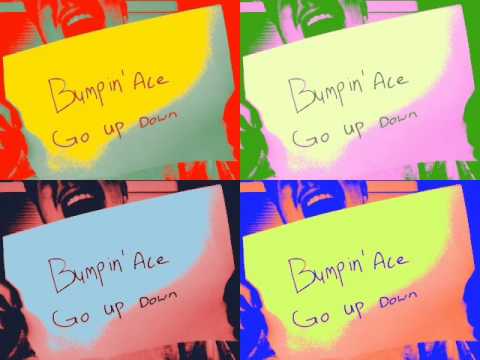 Bumpin' Ace
Go up Down
Bumpin' Ace
Go up Down
Bumpin' Ace
Go up Down
Bumpin' Ace
Go up Down